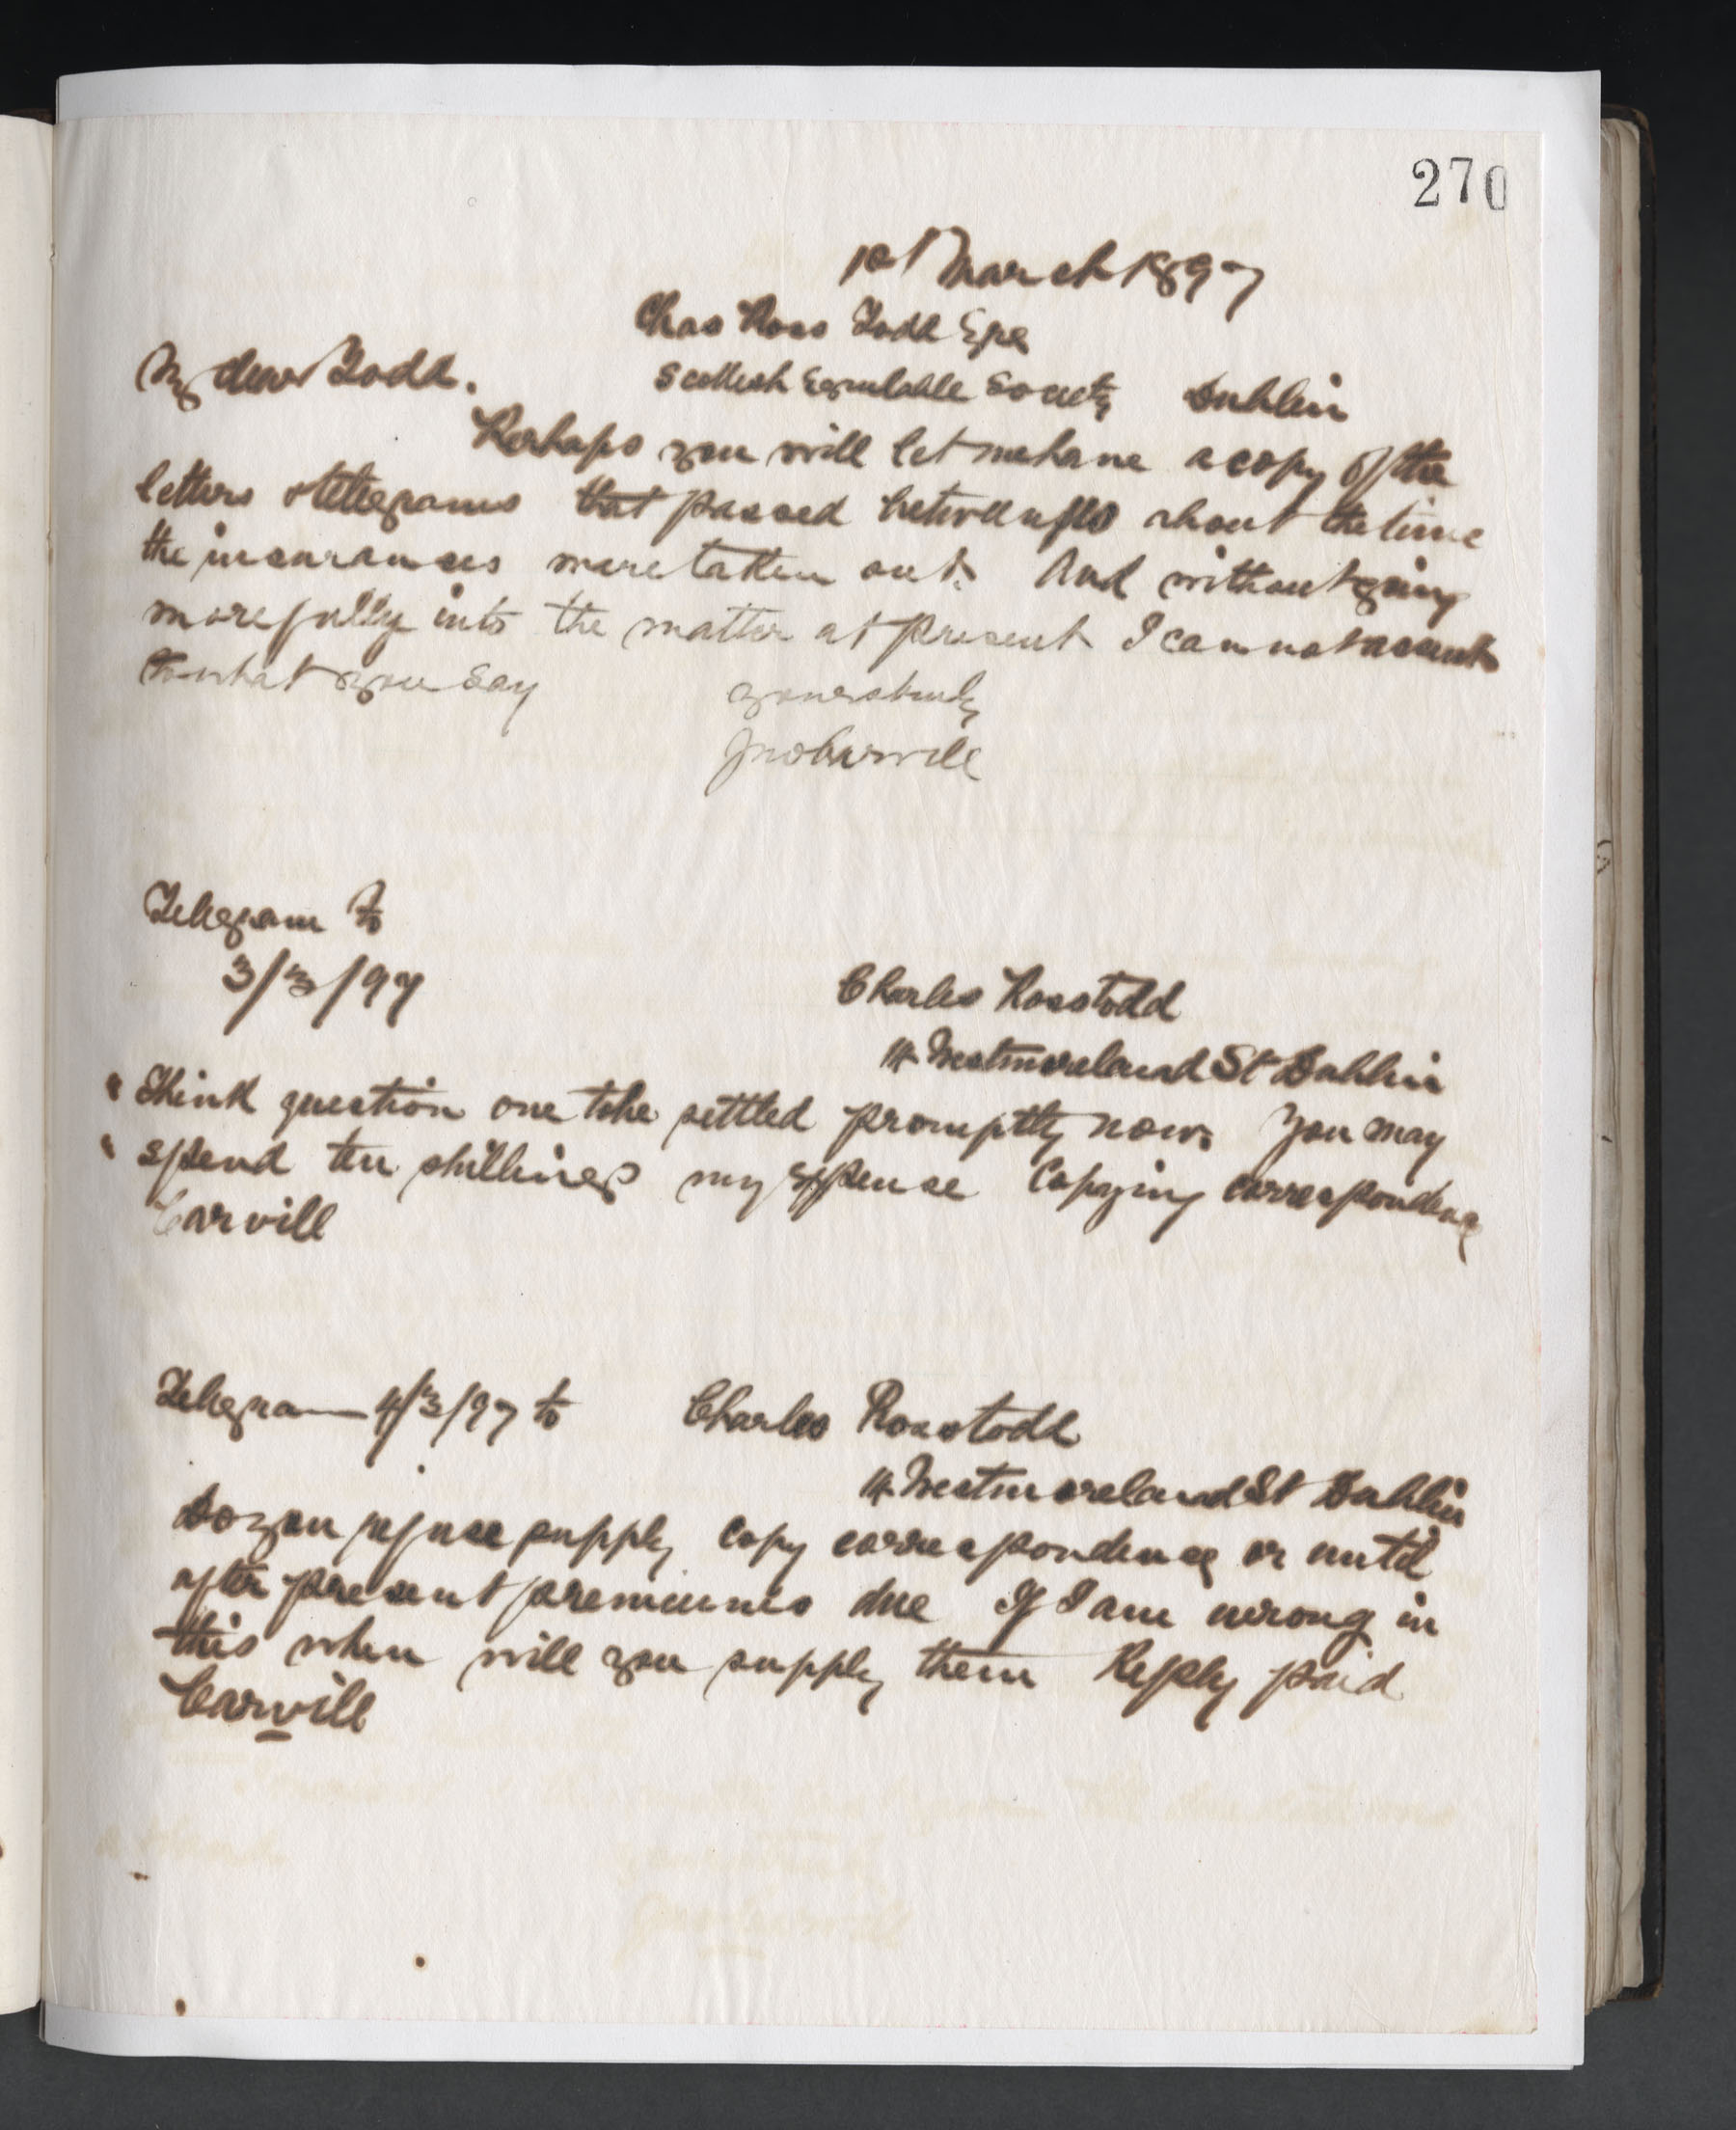 270
1st March 1897
Chas Ross Todd Esq
My dear Todd.
Scottish Equitable Society Dublin
Perhaps you will let me have a copy of the
letters & telegrams that passed between us about the time
the insurances were taken out. And without going
more fully into the matter at present I cannot assent
to what you say
yours truly
Jno Carvill
Telegram to
3/3/97
Charles Rosstodd
14 Westmoreland St Dublin
Think question one to be settled promptly now. You may
spend ten shillings my expense Copying correspondence
Carvill
Telegram 4/3/97 to Charles Rosstodd
14 Westmoreland St Dublin
Do you refuse supply copy correspondence or until
after present premiums due If I am wrong in
this when will you supply them Reply paid
Carvill